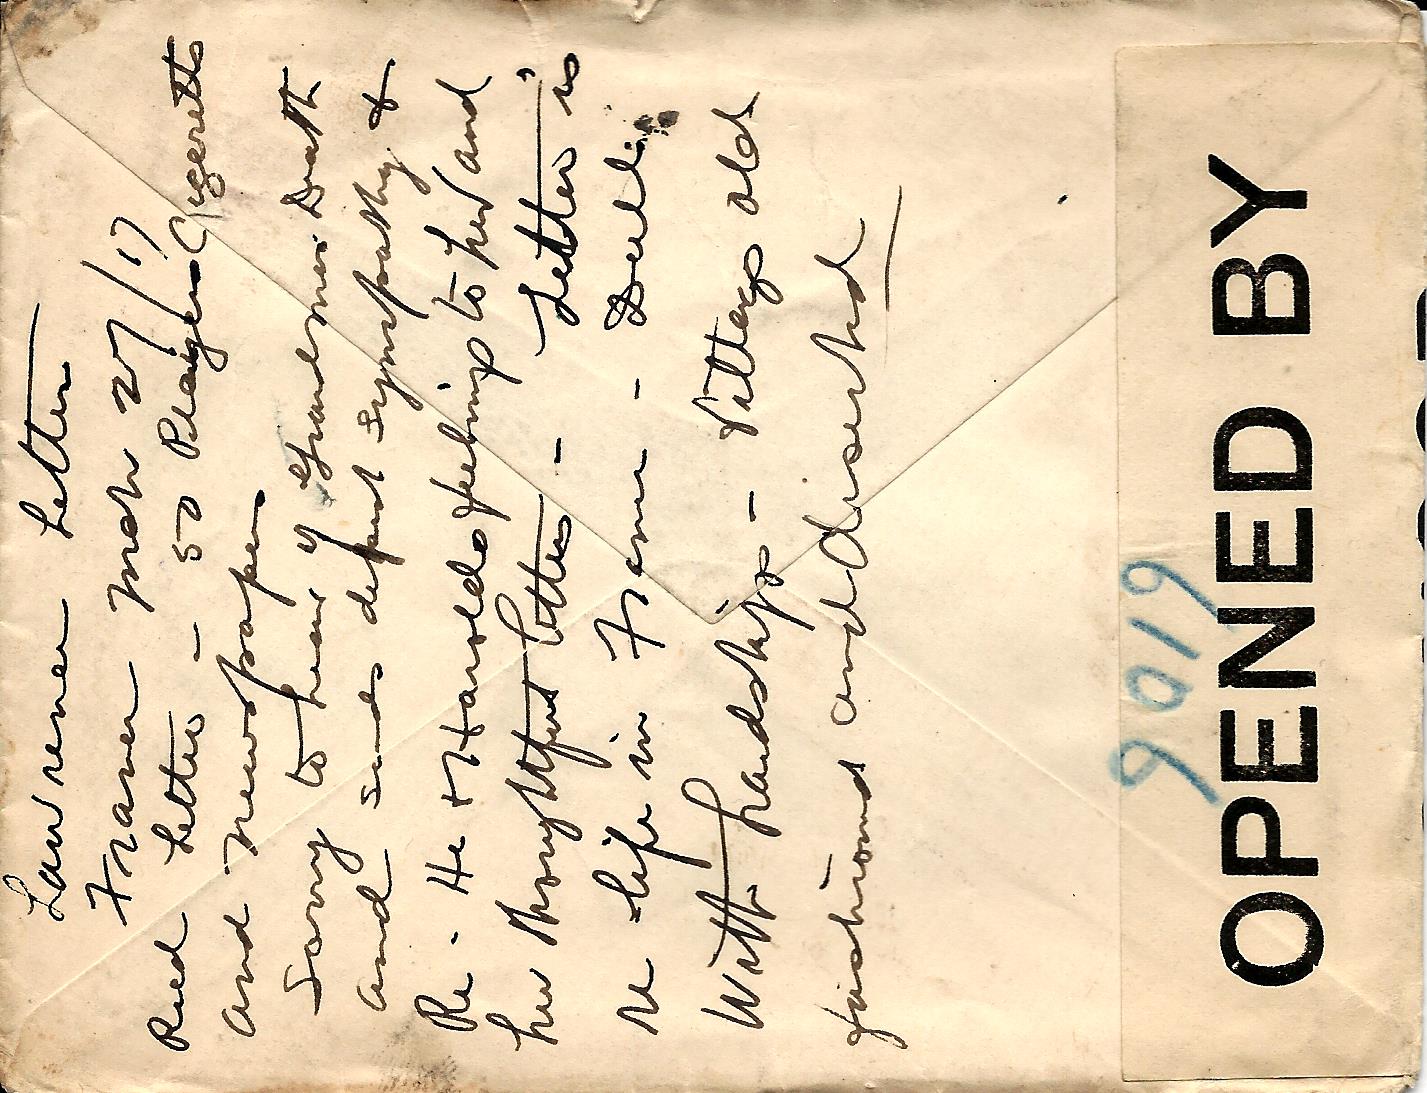 Lawrence Letter
France Mch 27/17
Recd Letters - 50 Players Cigeretts
and Newspapers
Sorry to hear of Grandma's Death
and sends deepest sympathy &
Re. He & Harolds feelings to her and
her thoughtful letters - Letter is
re life in France - Deals
With hardships - Villages old
fashioned and diserted
9019
OPENED BY